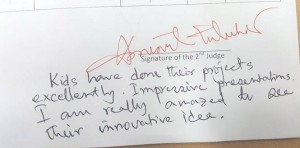 Signature of the 2nd Judge
Kids have done their projects
excellently. Impressive presentations.
I am really amazed to see
their innovative idea.